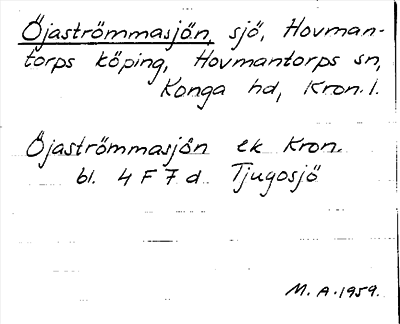 Öjaströmmasjön, sjö, Hovman-
torps köping, Hovmantorps sn,
Konga hd, Kron. l.
Öjaströmmasjön ek Kron.
bl. 4 F 7 d Tjugosjö
M. A. 1959.